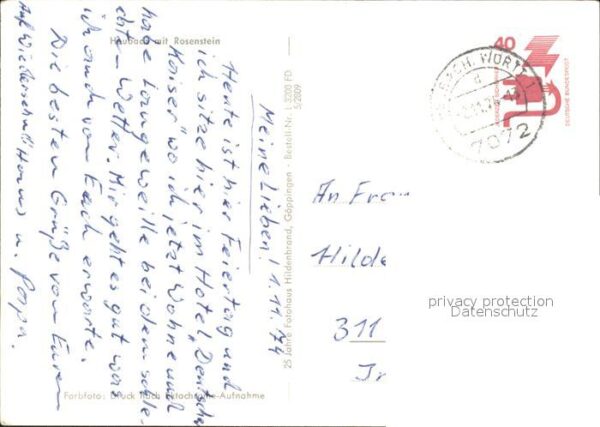 Heubach mit Rosenstein
Meine Lieben! 1.11.74
Heute ist hier Feiertag und
ich sitze hier im Hotel „Deutscher
Kaiser" wo ich jetzt wohne und
habe Langeweile bei dem schle-
chten Wetter. Mir geht es gut was
ich auch von Euch erwarte.
Die besten Grüße von Eurem
Hans u. Papa.
Auf Wiedersehn!
Farbfoto: Druck nach Ektachrome-Aufnahme
25 Jahre Fotohaus Hildenbrand, Göppingen - Bestell-Nr. L 3200 FD
5/2009
40
DEUTSCHE BUNDESPOST
7072
An Frau
Hilde
311
privacy protection
Datenschutz